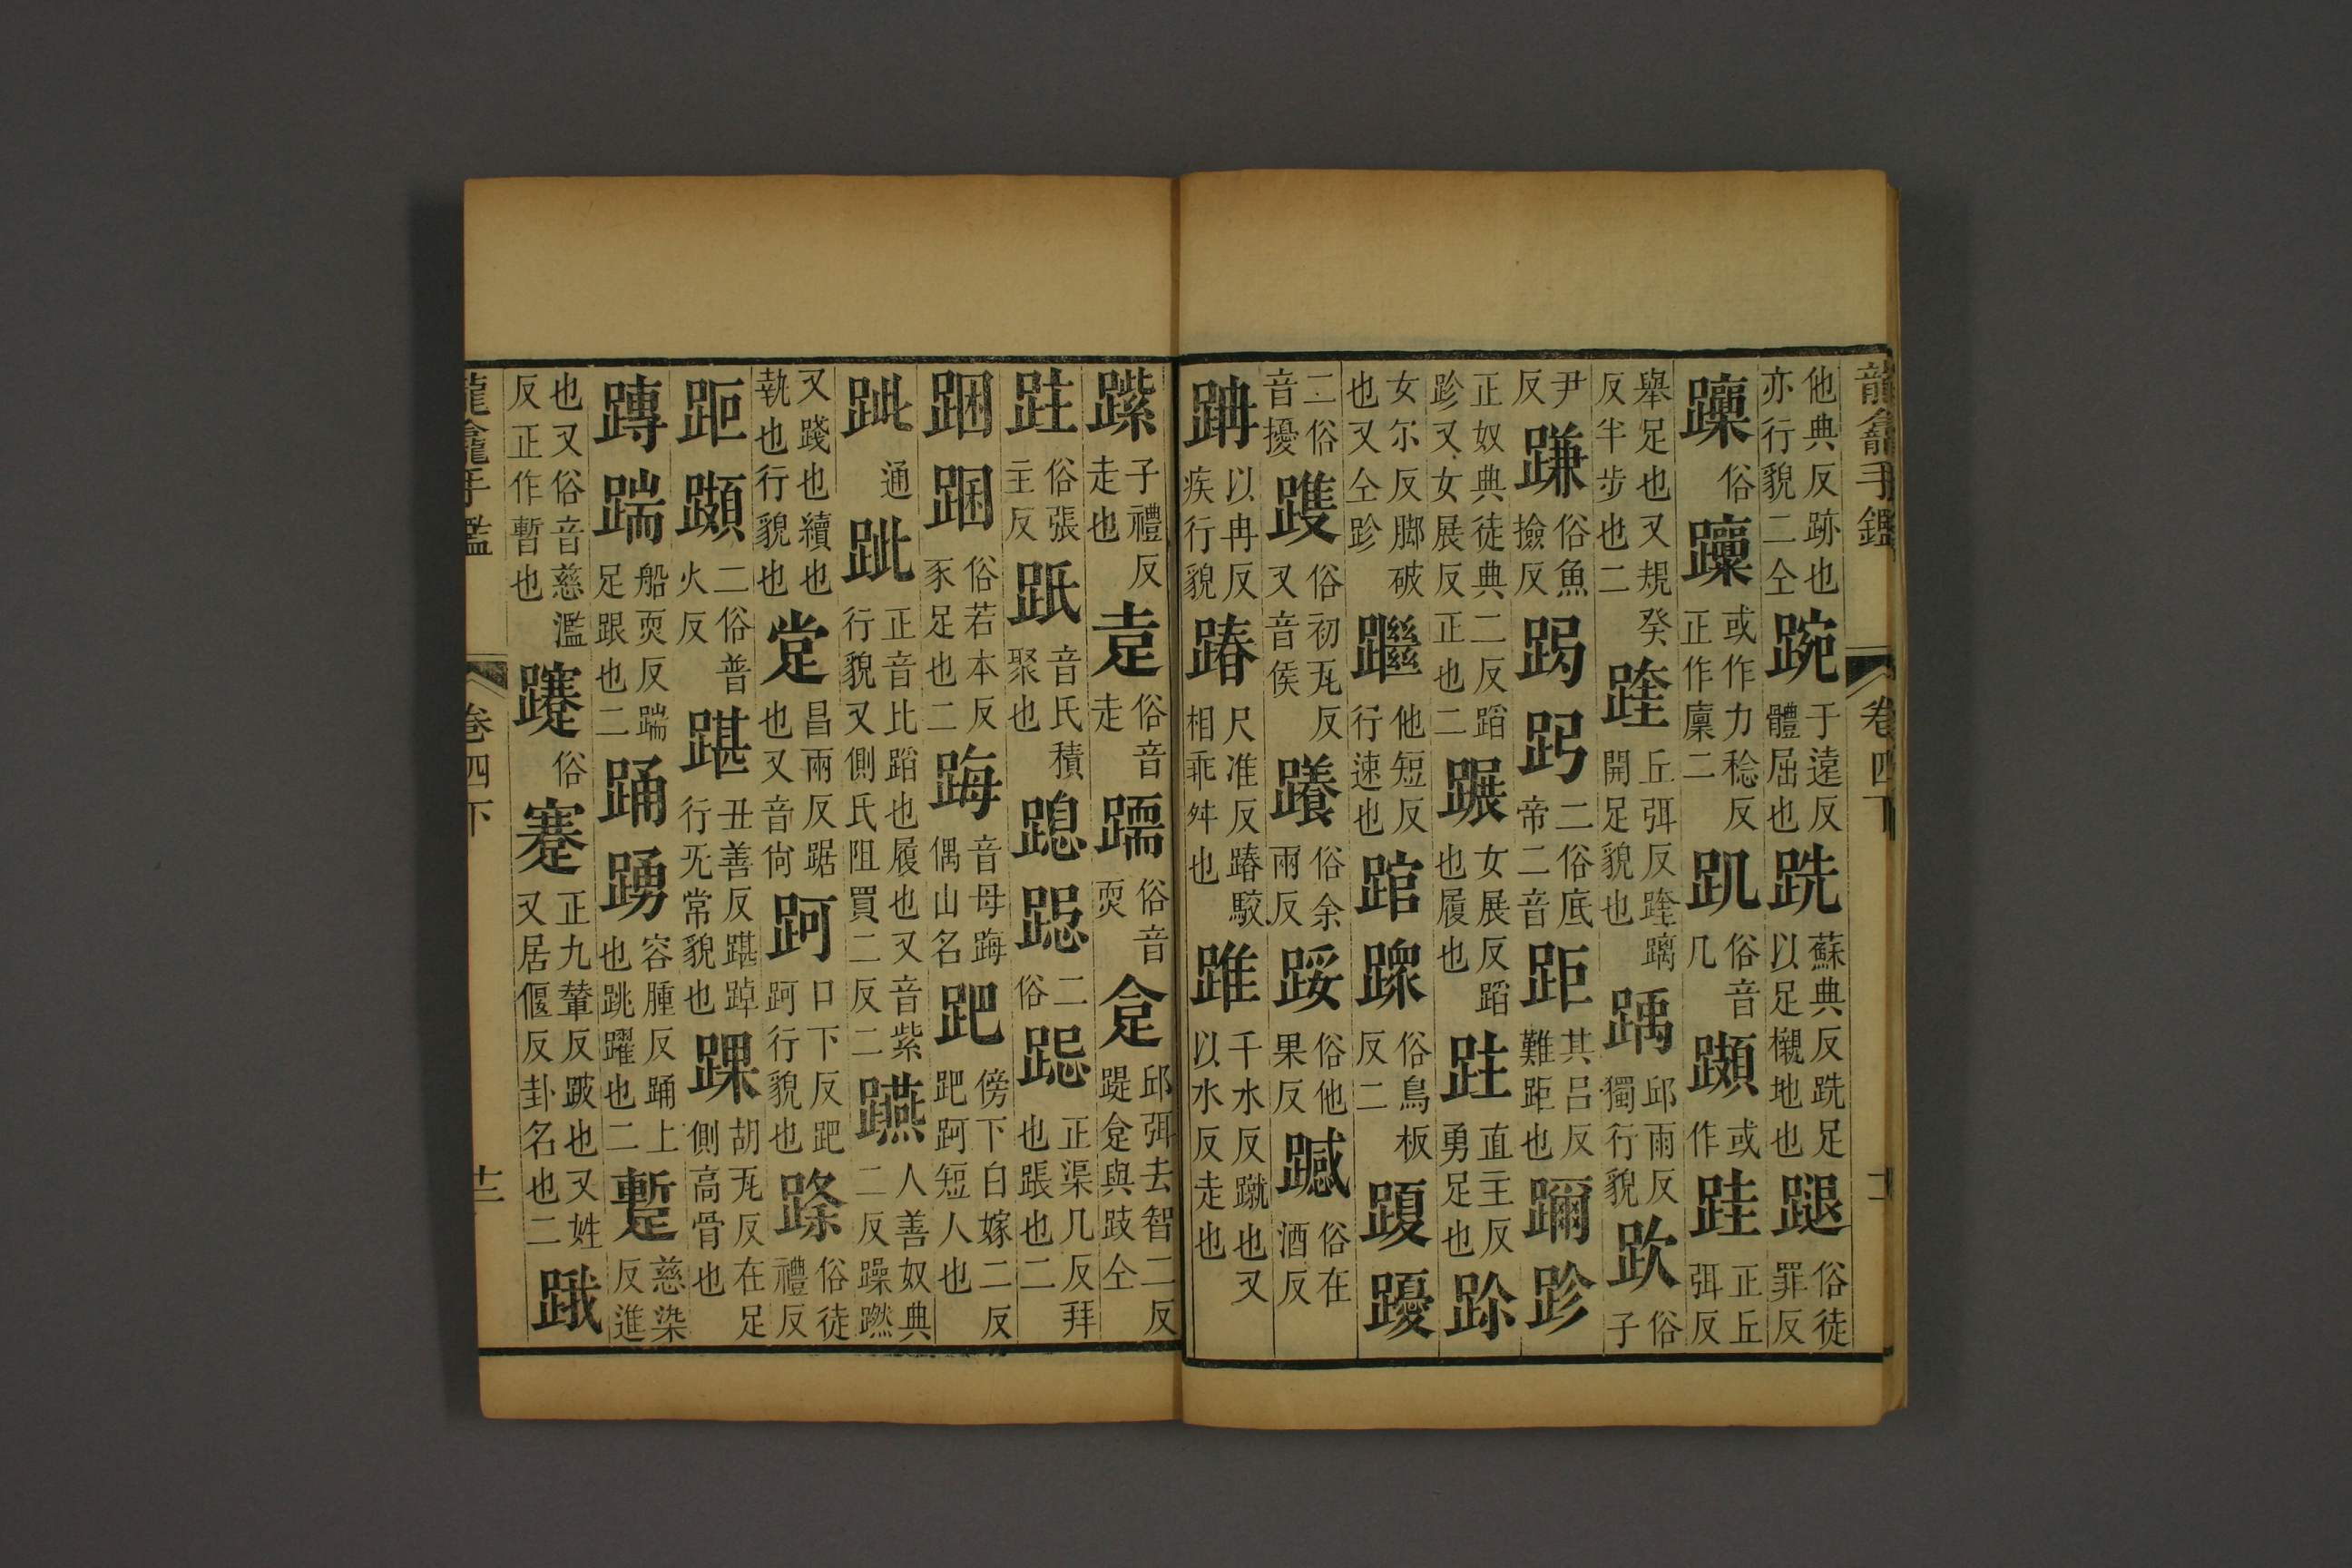 龍龕手鑑 卷四下
他典反跡也亦行貌二仝 踠 于遠反體屈也 跣 蘇典反跣足以足櫬地也 𨃥 俗徒罪反
俗 或作力稔反正作廩二 䟇 俗音几 或作 跬 正丘弭反
舉足也又規癸反半步也二 䠑 丘弭反䠑䠓開足貌也 踽 邱雨反獨行貌 俗子
尹反 䠓 俗魚撿反 二俗底帝二音 距 其呂反難距也 𨇨 跈
正奴典徒典二反蹈跈又女展反正也二 蹍 女展反蹈也履也 跓 直主反勇足也 跈
女尓反脚破也又仝跈 𨇮 他短反行速也 踣 俗鳥板反二
二俗音擾 䠖 俗初瓦反又音矦 俗余兩反 䟺 俗他果反 俗在酒反
䟢 以冉反疾行貌 踳 尺准反踳駮相乖舛也 踓 千水反蹴也又以水反走也
子禮反走也 赱 俗音走 俗音耎 邱弭去智二反踶𧿁與跂仝
跓 俗張主反 䟡 音氏積聚也 二俗 正渠几反拜也跽也二
䠅 䠅 俗若本反豕足也二 踇 音母踇偶山名 跁 傍下白嫁二反跁跒短人也
跐 通 跐 正音比蹈也履也又音紫行貌又側氏阻買二反二 人善奴典二反躁蹨
又踐也續也執也行貌也 㙁 昌兩反踞也又音尙 跒 口下反跁跒行貌也 俗徒禮反
距 二俗普火反 踸 丑善反踸踔行旡常貌也 踝 胡瓦反在足側高骨也
䠠 踹 船耎反踹足跟也二 踊 踴 容腫反踊上也跳躍也二 蹔 慈染反進
也又俗音慈濫反正作暫也 俗 蹇 正九輦反跛也又姓又居偃反卦名也二 䟰
龍龕手鑑 卷四下 十二